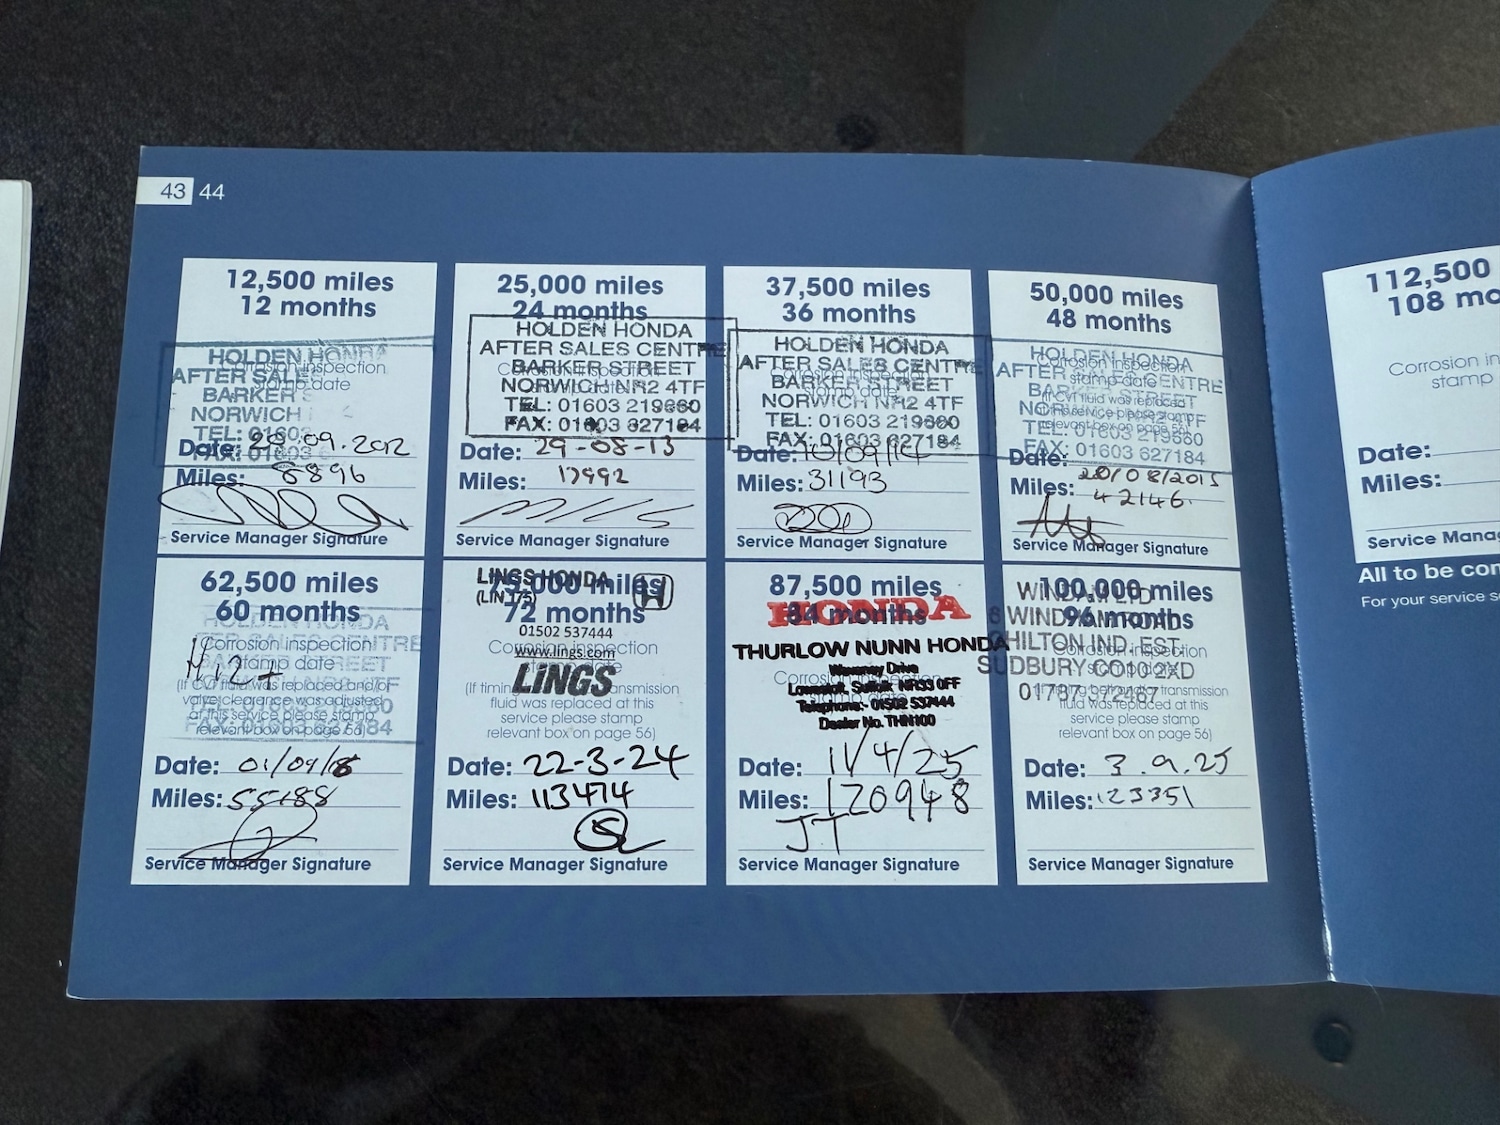 43 44
12,500 miles
12 months
HOLDEN HONDA
Corrosion inspection
AFTER SALE
stamp date
BARKER S
NORWICH
TEL: 01603
FAX: 01603 6
Date: 28.09.2012
Miles: 8896
Service Manager Signature
25,000 miles
24 months
HOLDEN HONDA
AFTER SALES CENTRE
BARKER STREET
NORWICH NR2 4TF
TEL: 01603 219660
FAX: 01603 627184
Date: 29-08-13
Miles: 17992
Service Manager Signature
37,500 miles
36 months
HOLDEN HONDA
AFTER SALES CENTRE
BARKER STREET
NORWICH NR2 4TF
TEL: 01603 219660
FAX: 01603 627184
Date: 10/09/14
Miles: 31193
Service Manager Signature
50,000 miles
48 months
HOLDEN HONDA
Corrosion inspection
AFTER SALES CENTRE
stamp date
BARKER STREET
NORWICH NR2 4TF
TEL: 01603 219660
FAX: 01603 627184
Date: 20/08/2015
Miles: 42146.
Service Manager Signature
62,500 miles
60 months
HOLDEN HONDA
AFTER SALES CENTRE
Corrosion inspection
stamp date
(If CVT fluid was replaced and/or
valve clearance was adjusted
at this service please stamp
relevant box on page 56)
FAX: 01603 627184
Date: 01/09/16
Miles: 55188
Service Manager Signature
75,000 miles
LINGS HONDA
(LIN 175)
72 months
01502 537444
Corrosion inspection
www.lings.com
stamp date
LINGS
(If timing transmission
fluid was replaced at this
service please stamp
relevant box on page 56)
Date: 22-3-24
Miles: 113474
Service Manager Signature
87,500 miles
84 months
HONDA
THURLOW NUNN HONDA
Waveney Drive
Corrosion inspection
Lowestoft, Suffolk NR33 0FF
Telephone:- 01502 537444
Dealer No. THN100
Date: 11/4/25
Miles: 120948
J.T
Service Manager Signature
100,000 miles
96 months
CHILTON IND. EST.
Corrosion inspection
SUDBURY CO10 2XD
fluid was replaced at this
service please stamp
relevant box on page 56)
Date: 3.9.25
Miles: 123351
Service Manager Signature
112,500
108 mo
Corrosion in
stamp
Date:
Miles:
Service Mana
All to be con
For your service s